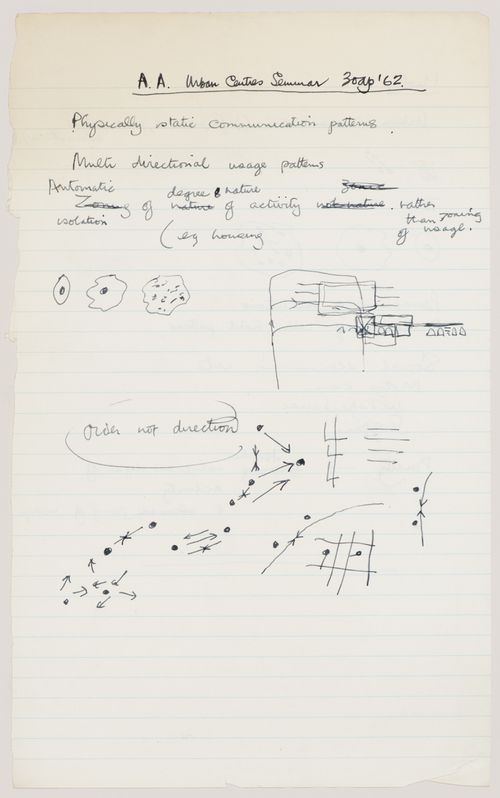 A.A. Urban Centres Seminar 30 ap '62.
Physically static communication patterns.
Multi directional usage patterns
Automatic degree & nature Zones
Zoning of nature of activity not nature. rather
isolation than zoning
(eg housing of usage.
Order not direction